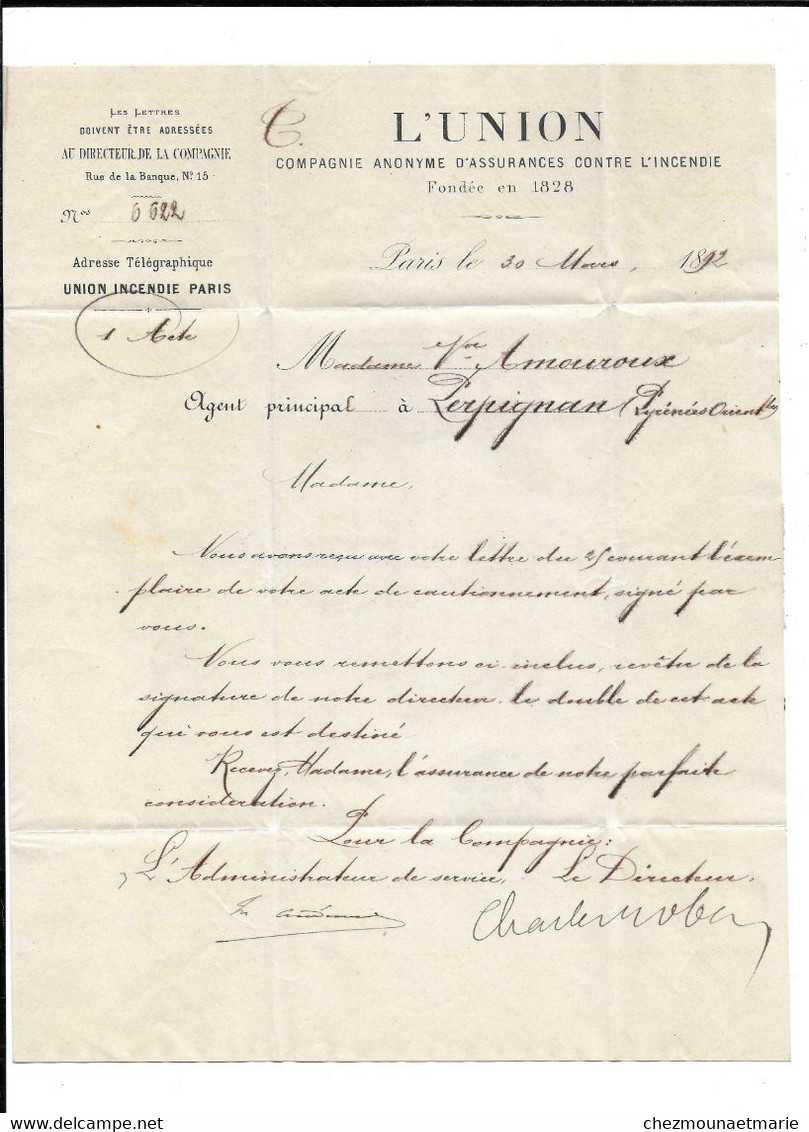 LES LETTRES
DOIVENT ÊTRE ADRESSÉES
AU DIRECTEUR DE LA COMPAGNIE
Rue de la Banque, Nº 15
Nos 6622
Adresse Télégraphique
UNION INCENDIE PARIS
1 Acte
C.
L'UNION
COMPAGNIE ANONYME D'ASSURANCES CONTRE L'INCENDIE
Fondée en 1828
Paris le 30 Mars, 1892
Madame Vve Amouroux
Agent principal à Perpignan (Pyrénées Orientles)
Madame,
Nous avons reçu avec votre lettre du 25 courant l'exem-
plaire de votre acte de cautionnement, signé par
vous.
Nous vous remettons ci-inclus, revêtu de la
signature de notre directeur le double de cet acte
qui vous est destiné
Recevez, Madame, l'assurance de notre parfaite
considération.
Pour la Compagnie:
L'Administrateur de service, Le Directeur,
Charles Robert
chezmounaetmarie